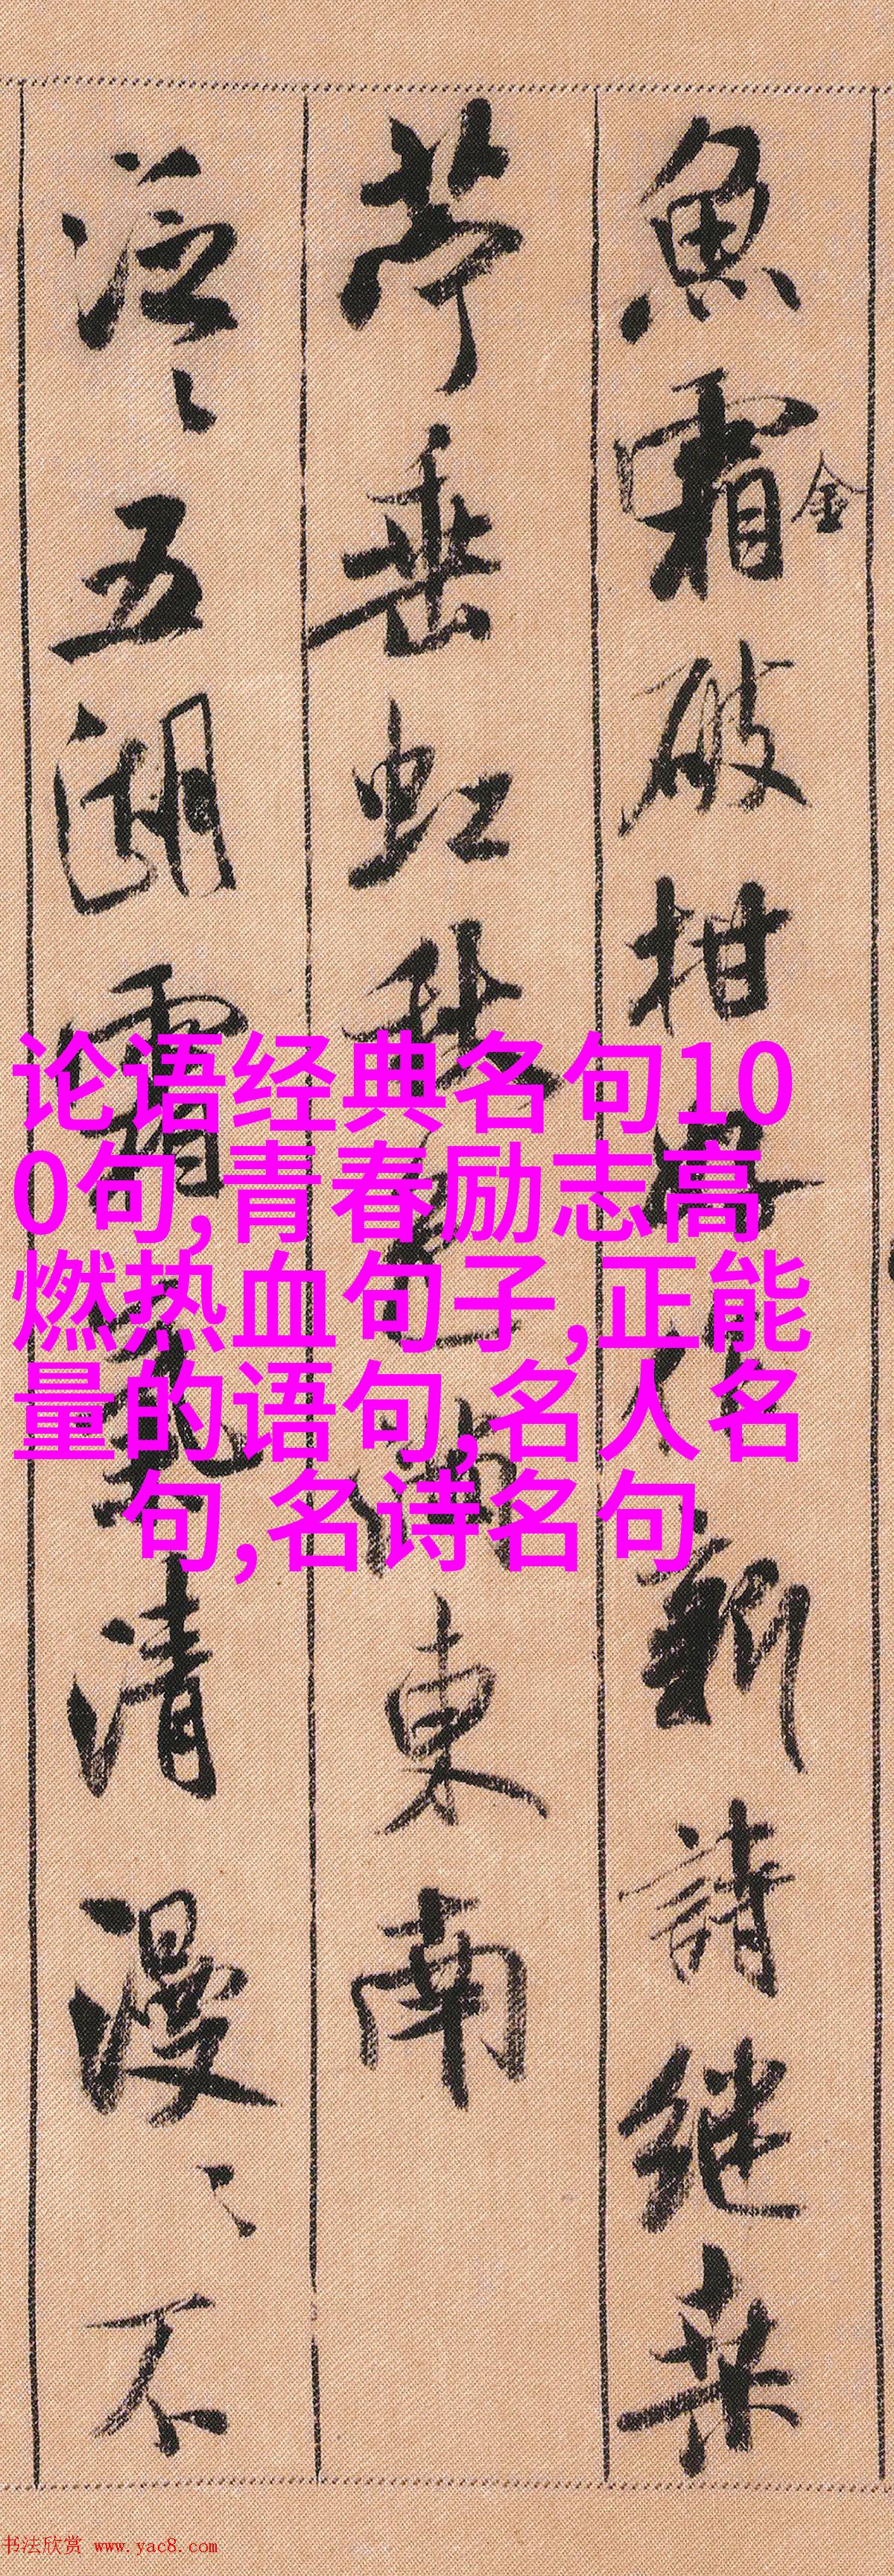 魚霜破柑好作新詩継桒
金
苧垂虹秋色滿東南
泛〻五湖霜氣清漫〻不
论语经典名句10
0句,青春励志高
燃热血句子,正能
量的语句,名人名
句,名诗名句
书法欣赏 www.yac8.com